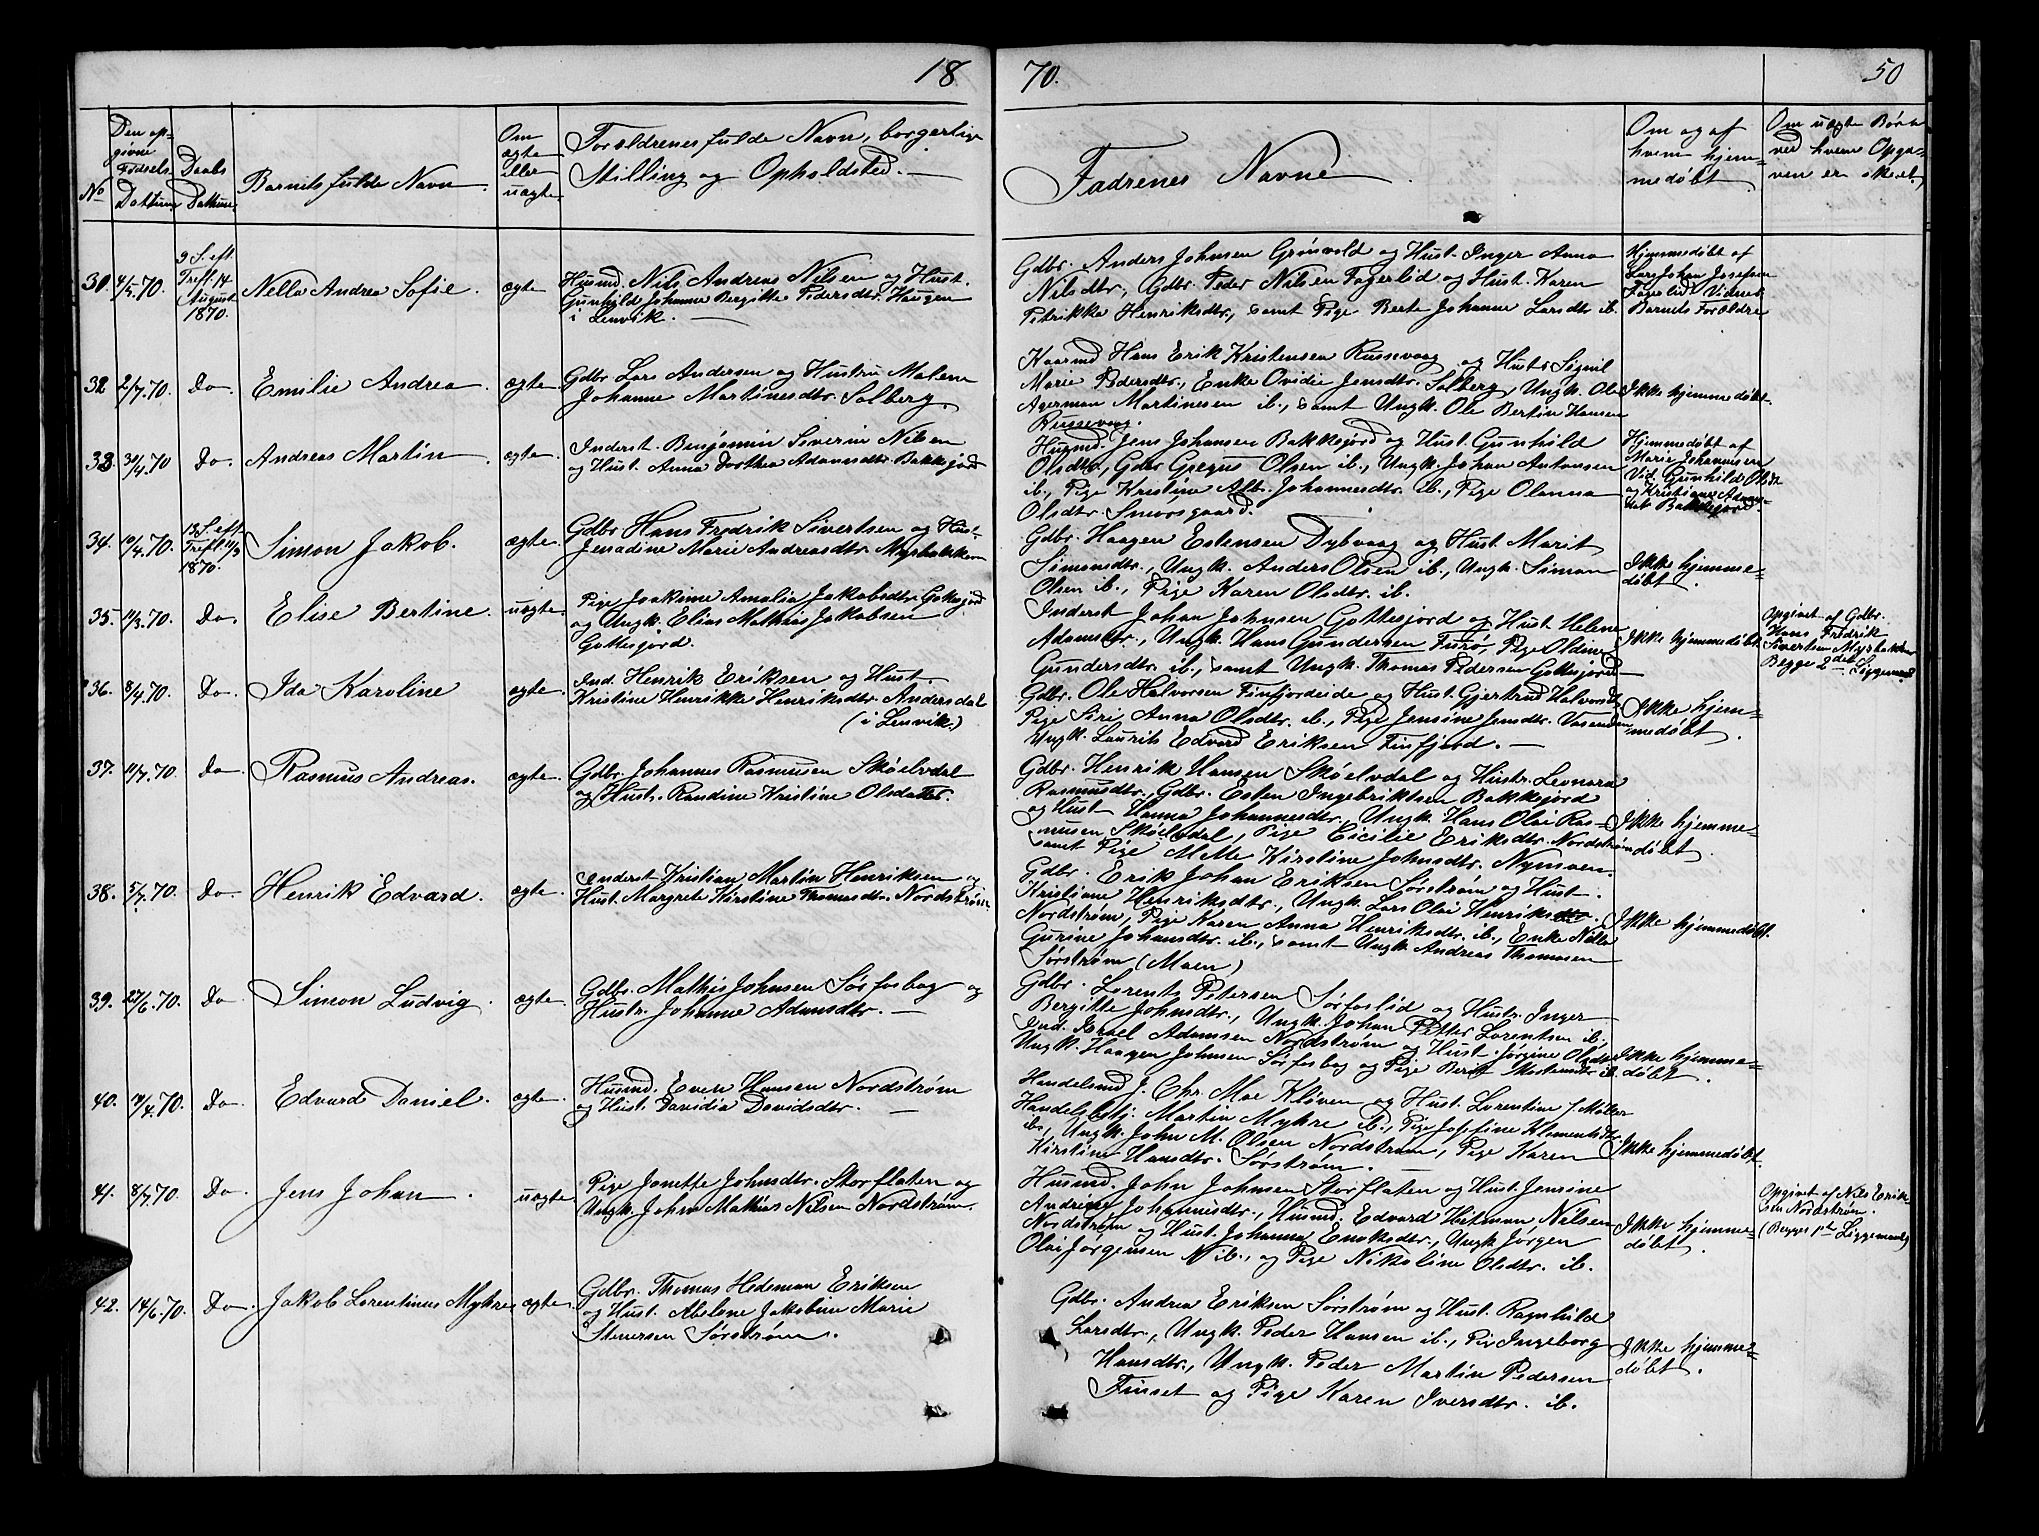 18
70.
50
No
Den op=
givne
Fødsels
Dattum
Daabs
Dattum.
Barnets fulde Navn.
Om
ægte
eller
uægte
Forældrenes fulde Navn, borgerlige
Stilling og Opholdsted.
Fadrenes Navne
Om og af
hvem hjem=
medøbt.
Om uægte Børn
ved hvem Opga=
ven er skeet.
4/5.70.
9 S. eft
Tref. 14
August
1870.
Nella Andrea Sofie.
ægte
Husmd. Nils Andreas Nilsen og Hust.
Gunhild Johanne Bergitte Pedersdtr. Haugen
i Lenvik.
Gdbr. Anders Johnsen Grønvold og Hust. Inger Anna
Nilsdtr., Gdbr. Peder Nilsen Fagerlid og Hust. Karen
Petrikke Henriksdtr., samt Pige Berte Johanne Larsdtr ib.
Hjemmedøbt af
Lars Johan Josefsen
Fagerlid Vidner
Barnets Forældre
32
2/7.70.
Do
Emilie Andrea.
ægte.
Gdbr Lars Andersen og Hustru Malene
Johanne Martinesdtr. Solberg.
Kaarmd Hans Erik Kristensen Russevaag og Hustr Signil
Marie Pedersdtr., Enke Ovidie Jensdtr. Solberg, Ungk. Ole
Agerman Martinesen ib., samt Ungk. Ole Bertin Hansen
Russevaag.
Ikke hjemmedøbt.
33
Do.
Andreas Martin.
ægte.
Inderst. Benjamin Severin Nilsen
og Hust. Anna Dorthea Adamsdtr. Bakkejord
Husmd. Jens Johansen Bakkejord og Hust. Gunhild
Olsdtr, Gdbr Gregus Olsen ib., Ungk. Johan Antonsen
ib., Pige Kristine Alb. Johannesdtr. ib., Pige Olanna
Olsdtr. Smorsgaard.
Hjemmedøbt af
Marie Johannesen
Vid. Gunhild Olsdt
og Kristiane Adams=
dat Bakkejord
34.
10/4.70.
13 S. eft.
Tref. 11/9
1870.
Simon Jakob.
ægte.
Gdbr Hans Fredrik Sivertsen og Hust.
Jensdine Marie Andreasdtr. Myrbakken
Gdbr. Haagen Estensen Dybvaag og Hust. Marit
Simonsdtr., Ungk. Anders Olsen ib., Ungk. Simon
Olsen ib., Pige Karen Olsdtr. ib.
Ikke hjemme=
døbt.
35.
11/3.70.
Do.
Elise Bertine.
uægte.
Pige Joakime Amalia Jakobsdtr. Gotesjord
og Ungk. Elias Mathias Jakobsen
Gottesjord.
Inderst Johan Johnsen Gottesjord og Hust. Helene
Adamsdtr., Ungk. Hans Gundersen Furø, Pige Oldine
Gundersdtr. ib., samt Ungk. Thomas Pedersen Gottesjord
Ikke hjemmedøbt.
Opgivet af Gdbr.
Hans Fredrik
Sivertsen Myrbakken
Begge 2det Liggemaal
36.
8/4.70.
Do.
Ida Karoline
ægte.
Ind. Henrik Eriksen og Hust.
Kristine Henrikke Henriksdtr. Andersdal
(i Lenvik.)
Gdbr. Ole Halvorsen Finfjordeide og Hust. Gjertrud Halvorsdtr
Pige Siri Anna Olsdtr. ib., Pige Jensine Jensdtr. Vasenden
Ungk. Laurits Edvard Eriksen Finfjord.
Ikke hjem=
medøbt.
37.
11/7.70.
Do.
Rasmus Andreas.
ægte.
Gdbr. Johannes Rasmusen Skøelvdal
og Hustr. Randine Kristine Olsdatter.
Gdbr. Henrik Hansen Skøelvdal og Hustr. Leonora
Rasmusdtr., Gdbr. Esten Ingebriktsen Bakkejord
og Hust Hanna Johannesdtr., Ungk. Hans Olai Ras=
musen Skøelvdal, Pige Cicilie Eriksdtr. Nordstrøm
samt Pige Mette Kirstine Johnsdtr. Nymoen.
Ikke hjemme=
døbt.
38.
5/7.70.
Do.
Henrik Edvard.
ægte.
Inderst Kristian Martin Henriksen og
Hust. Margrete Kirstine Thomasdtr. Nordstrøm.
Gdbr. Erik Johan Eriksen Sørstrøm og Hust.
Kristiane Henriksdtr., Ungk. Lars Olai Henriksen.
Nordstrøm, Pige Karen Anna Henriksdtr. ib., Enke Nille
Gurine Johansdtr. ib., samt Ungk. Andreas Thomasen
Sørstrøm (Moen)
Ikke hjemmedøbt.
39.
27/6.70.
Do
Simon Ludvig.
ægte.
Gdbr. Mathis Johnsen Sørfosbog og
Hustr. Johanne Adamsdtr.
Gdbr. Lorents Petersen Sørfoslid og Hustr. Inger
Bergitte Johnsdtr., Ungk. Johan Petter Lorentsen ib.,
Ind. Israel Adamsen Nordstrøm og Hust. Jørgine Olsdtr
Ungk. Haagen Johnsen Sørfosbog og Pige Berit Mortensdtr ib.
Ikke hjemme=
døbt.
40.
Do.
Edvard Daniel.
ægte.
Husmd. Even Hansen Nordstrøm
og Hust. Davidia Davidsdtr.
Handelsmd J. Chr. Moe Kløven og Hust. Lorentine f. Møller
Handelsbtj. Martin Myhre ib., Pige Josefine Klementsdtr.
ib., Ungk. John M. Olsen Nordstrøm, Pige Karen
Kirstine Hansdtr. Sørstrøm.
Ikke hjemmedøbt.
41.
8/7.70.
Do.
Jens Johan.
uægte.
Pige Jonette Johnsdtr. Storflaten og
Ungk. John Mathias Nilsen Nordstrøm.
Husmd. John Johnsen Storflaten og Hust. Jensine
Andrine Johannesdtr., Husmd. Edvard Hitman Nilsen
Nordstrøm og Hust. Johanna Enoksdtr., Ungk Jørgen
Olai Jørgensen N. ib., og Pige Nikoline Olsdtr. ib.
Ikke hjemme=
døbt.
Opgivet af Nils Erik=
sen Nordstrøm.
(Begges 1ste Liggemaal)
42.
14/6.70.
Do.
Jakob Lorentinus Myhre
ægte.
Gdbr. Thomas Hedeman Eriksen
og Hust. Abelone Jakobine Marie
Stenersen Sørstrøm.
Gdbr. Andrea Eriksen Sørstrøm og Hust. Ragnhild
Larsdtr., Ungk. Peder Hansen ib., Pige Ingeborg
Hansdtr., Ungk. Peder Martin Pedersen
Finset og Pige Karen Iversdtr. ib.
Ikke hjemme=
døbt.